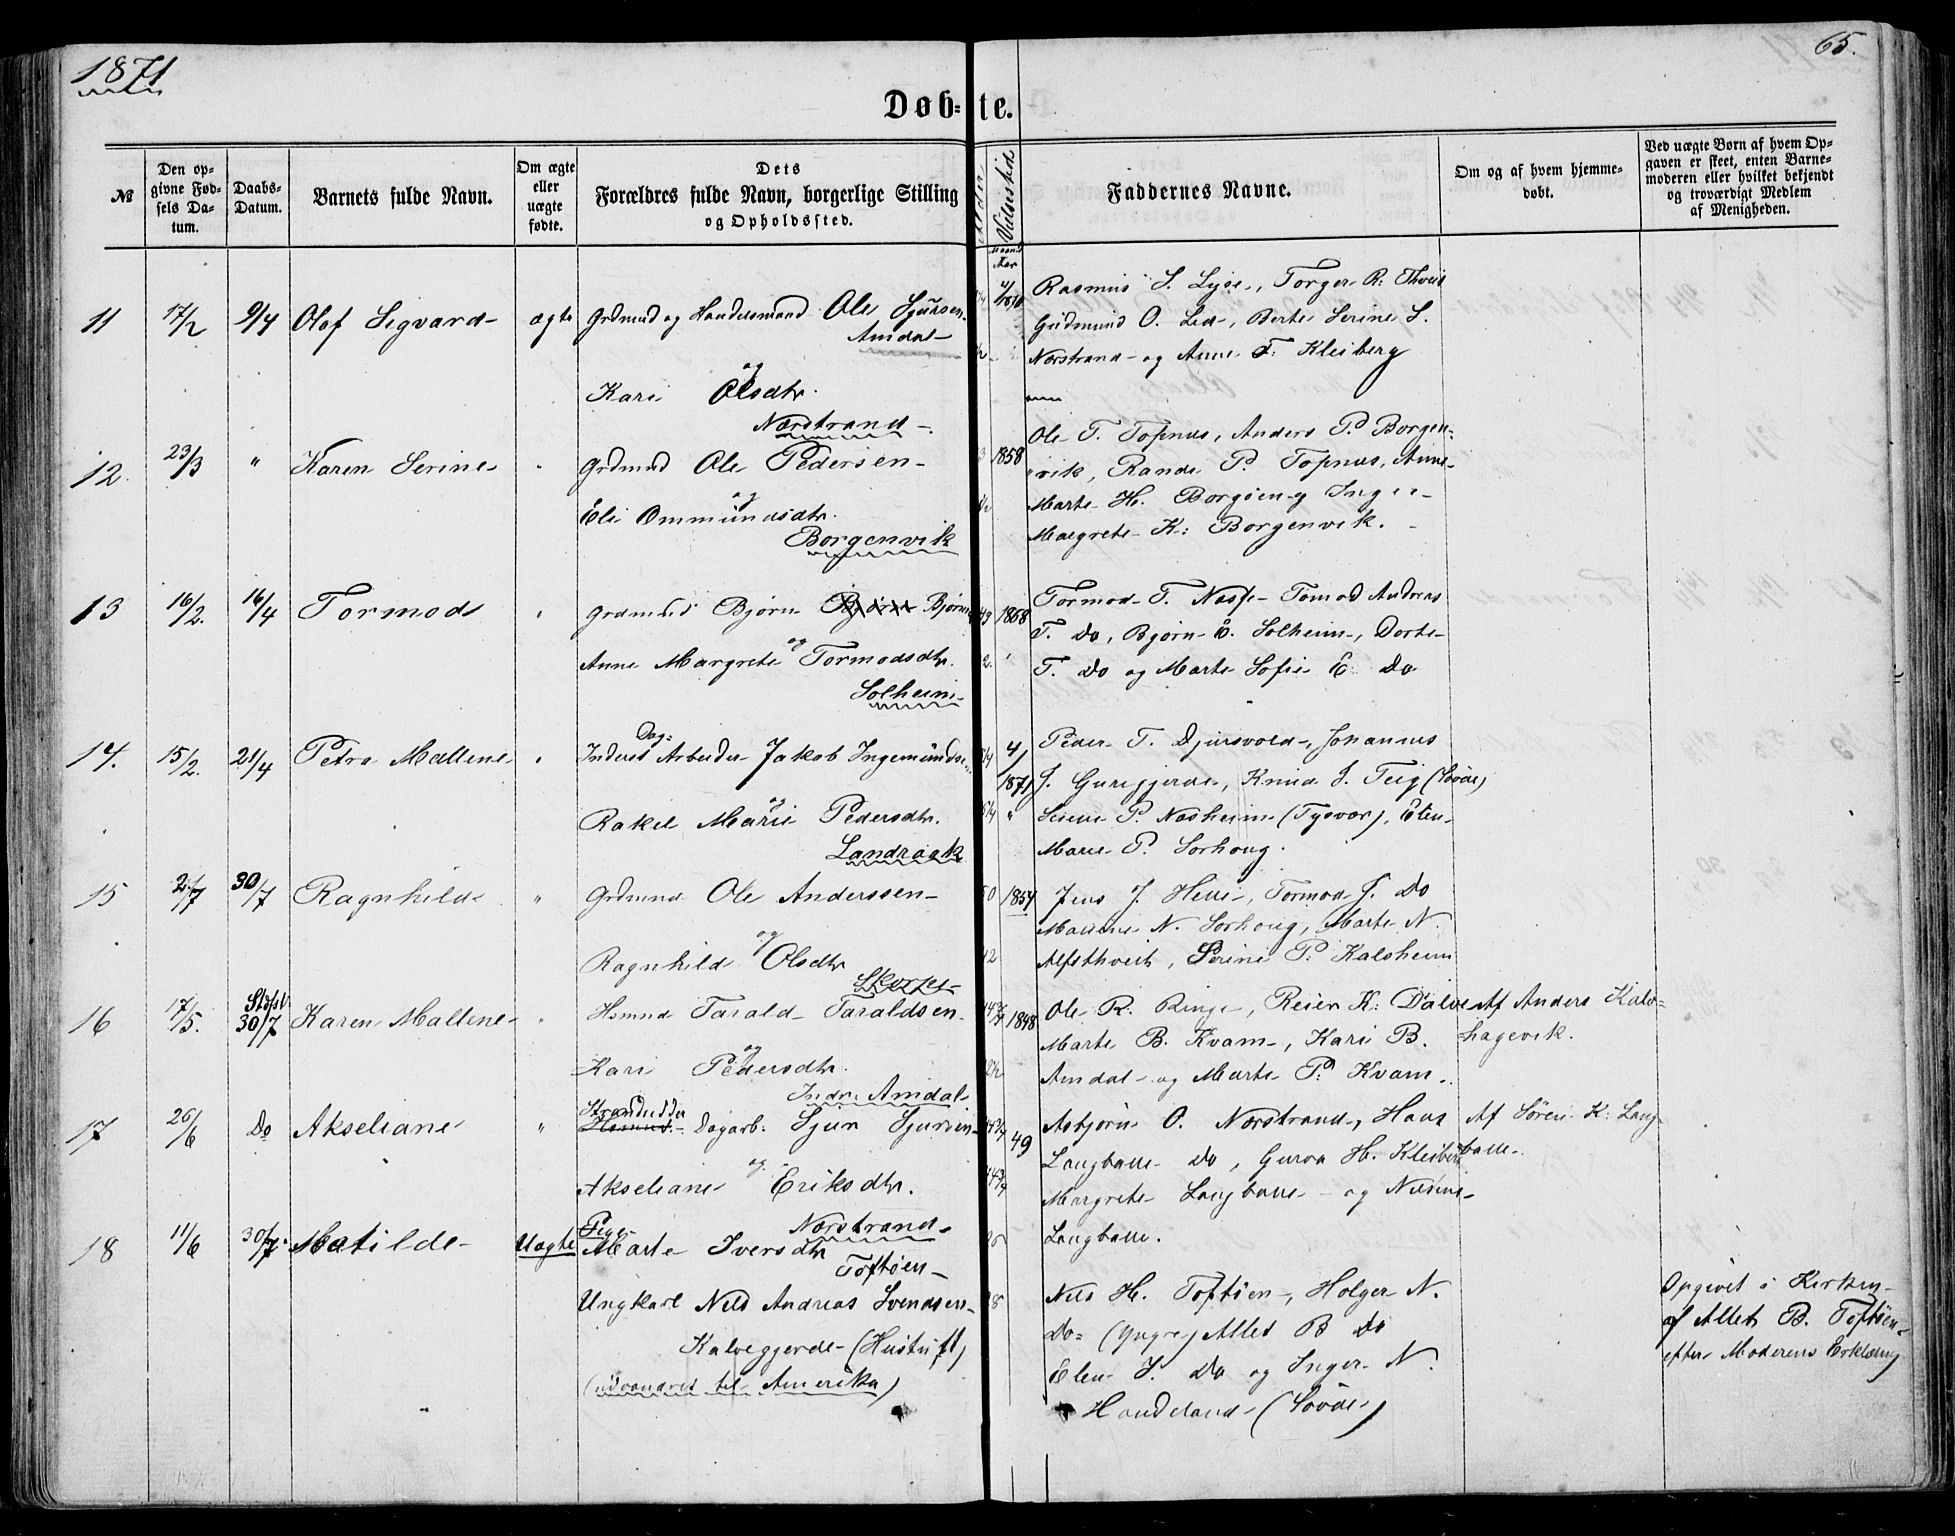 1871
65.
Døb-te.
№
Den op-
givne Fød-
sels Da-
tum.
Daabs-
Datum.
Barnets fulde Navn.
Om ægte
eller
uægte
fødte.
Dets
Forældres fulde Navn, borgerlige Stilling
og Opholdssted.
Alder
Vielsestid
Faddernes Navne.
Om og af hvem hjemme-
døbt.
Ved uægte Børn af hvem Op-
gaven er skeet, enten Barne-
moderen eller hvilket bekjendt
og troværdigt Medlem
af Menigheden.
11 17/2 9/4 Olof Sigvard ægte Grdmnd og Handelsmand Ole Sjursen
Amdal
og
Kari Olsdtr.
Nærstrand
4/1870
Rasmus S. Lyse, Torger R. Thveit
Gudmund O. Lid, Berte Serine S.
Nærstrand og Anne T. Kleiberg
12. 23/3 " Karen Serine " Grdmnd Ole Pedersen
og
Eli Ommundsdtr.
Borgenvik
1858
Ole T. Topnes, Anders P. Borgen-
vik, Rande P. Topnes, Anne
Marte H. Borgøen og Inger
Margrete K. Borgenvik.
13 16/2. 16/4 Tormod " Grdmnd Bjørn Bjørn Bjørns
og
Anne Margrete Tormodsdtr.
Solheim
1868
Tormod T. Næsse Tomod Andreas
T. Do, Bjørn E. Solheim, Dorte
T. Do og Marte Sofie E. Do
14. 15/2. 21/4 Petra Mallene " Inderst Dag: Arbeider Jakob Ingemundsen
og
Rakel Marie Pedersdtr.
Landraak
4/1871
Peder T. Djursvold, Johannes
J. Gureggjerde, Knud J. Teig (Søvde)
Serine P. Næsheim (Tysvær), Elen
Marie P. Sørhoug.
15 2/7 30/7 Ragnhild " Grdmnd Ole Anderssen
og
Ragnhild Olsdtr
1854
Jens J. Helle, Tormod J. Do
Malene N. Sørhoug, Marte N.
Alfsthveit, Serine P. Kalsheim
16 17/5. 30/7 Karen Mallene " Hsmnd Tarald Taraldsen
og
Kari Pedersdtr.
Indre Amdal
1848
Ole R. Ringe, Reier K. Dalve
Marte B. Kvam, Kari B.
Amdal og Marte P. Kvam.
Af Anders Kalv-
hagevik.
17 26/6 Do Akseliane " Strandsidder
Hsmnd. Dagarb: Sjur Sjursen
og
Akseliane Eriksdtr.
Nærstrand
49
Asbjørn O. Nærstrand, Hans
Langballe Do, Gurva H. Kleiberg
Margrete Langballe og Nilsine
Langballe.
Af Søren K. Lang-
balle.
18 11/6 30/7. Matilde Uægte Pige
Marte Iversdtr
Toftøen
Ungkarl Nils Andreas Svendsen
Kalveggjerde (Hustuft)
(udvandret til Amerika)
Nils H. Toftøen, Holger N.
Do (Yngre) Allet B Do
Elen J. Do og Inger N.
Handeland (Søvde)
Opgivet i Kirken
af Allet B. Toftøen
efter Moderens Erklæring